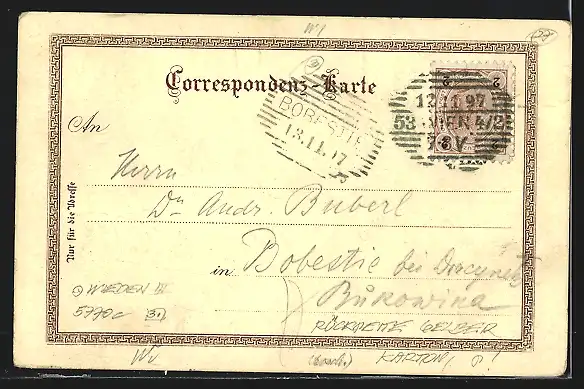 Correspondenz-Karte
BOBESTIE
13.11.97
2 2
12.11.97
53 WIEN 4/2
7.V
An
Herrn
Dr Andr. Buberl
in Bobestie bei
Bukowina
Nur für die Adresse
WIEDEN IV
5770c
RÜCKSEITE GELBER
KARTON!